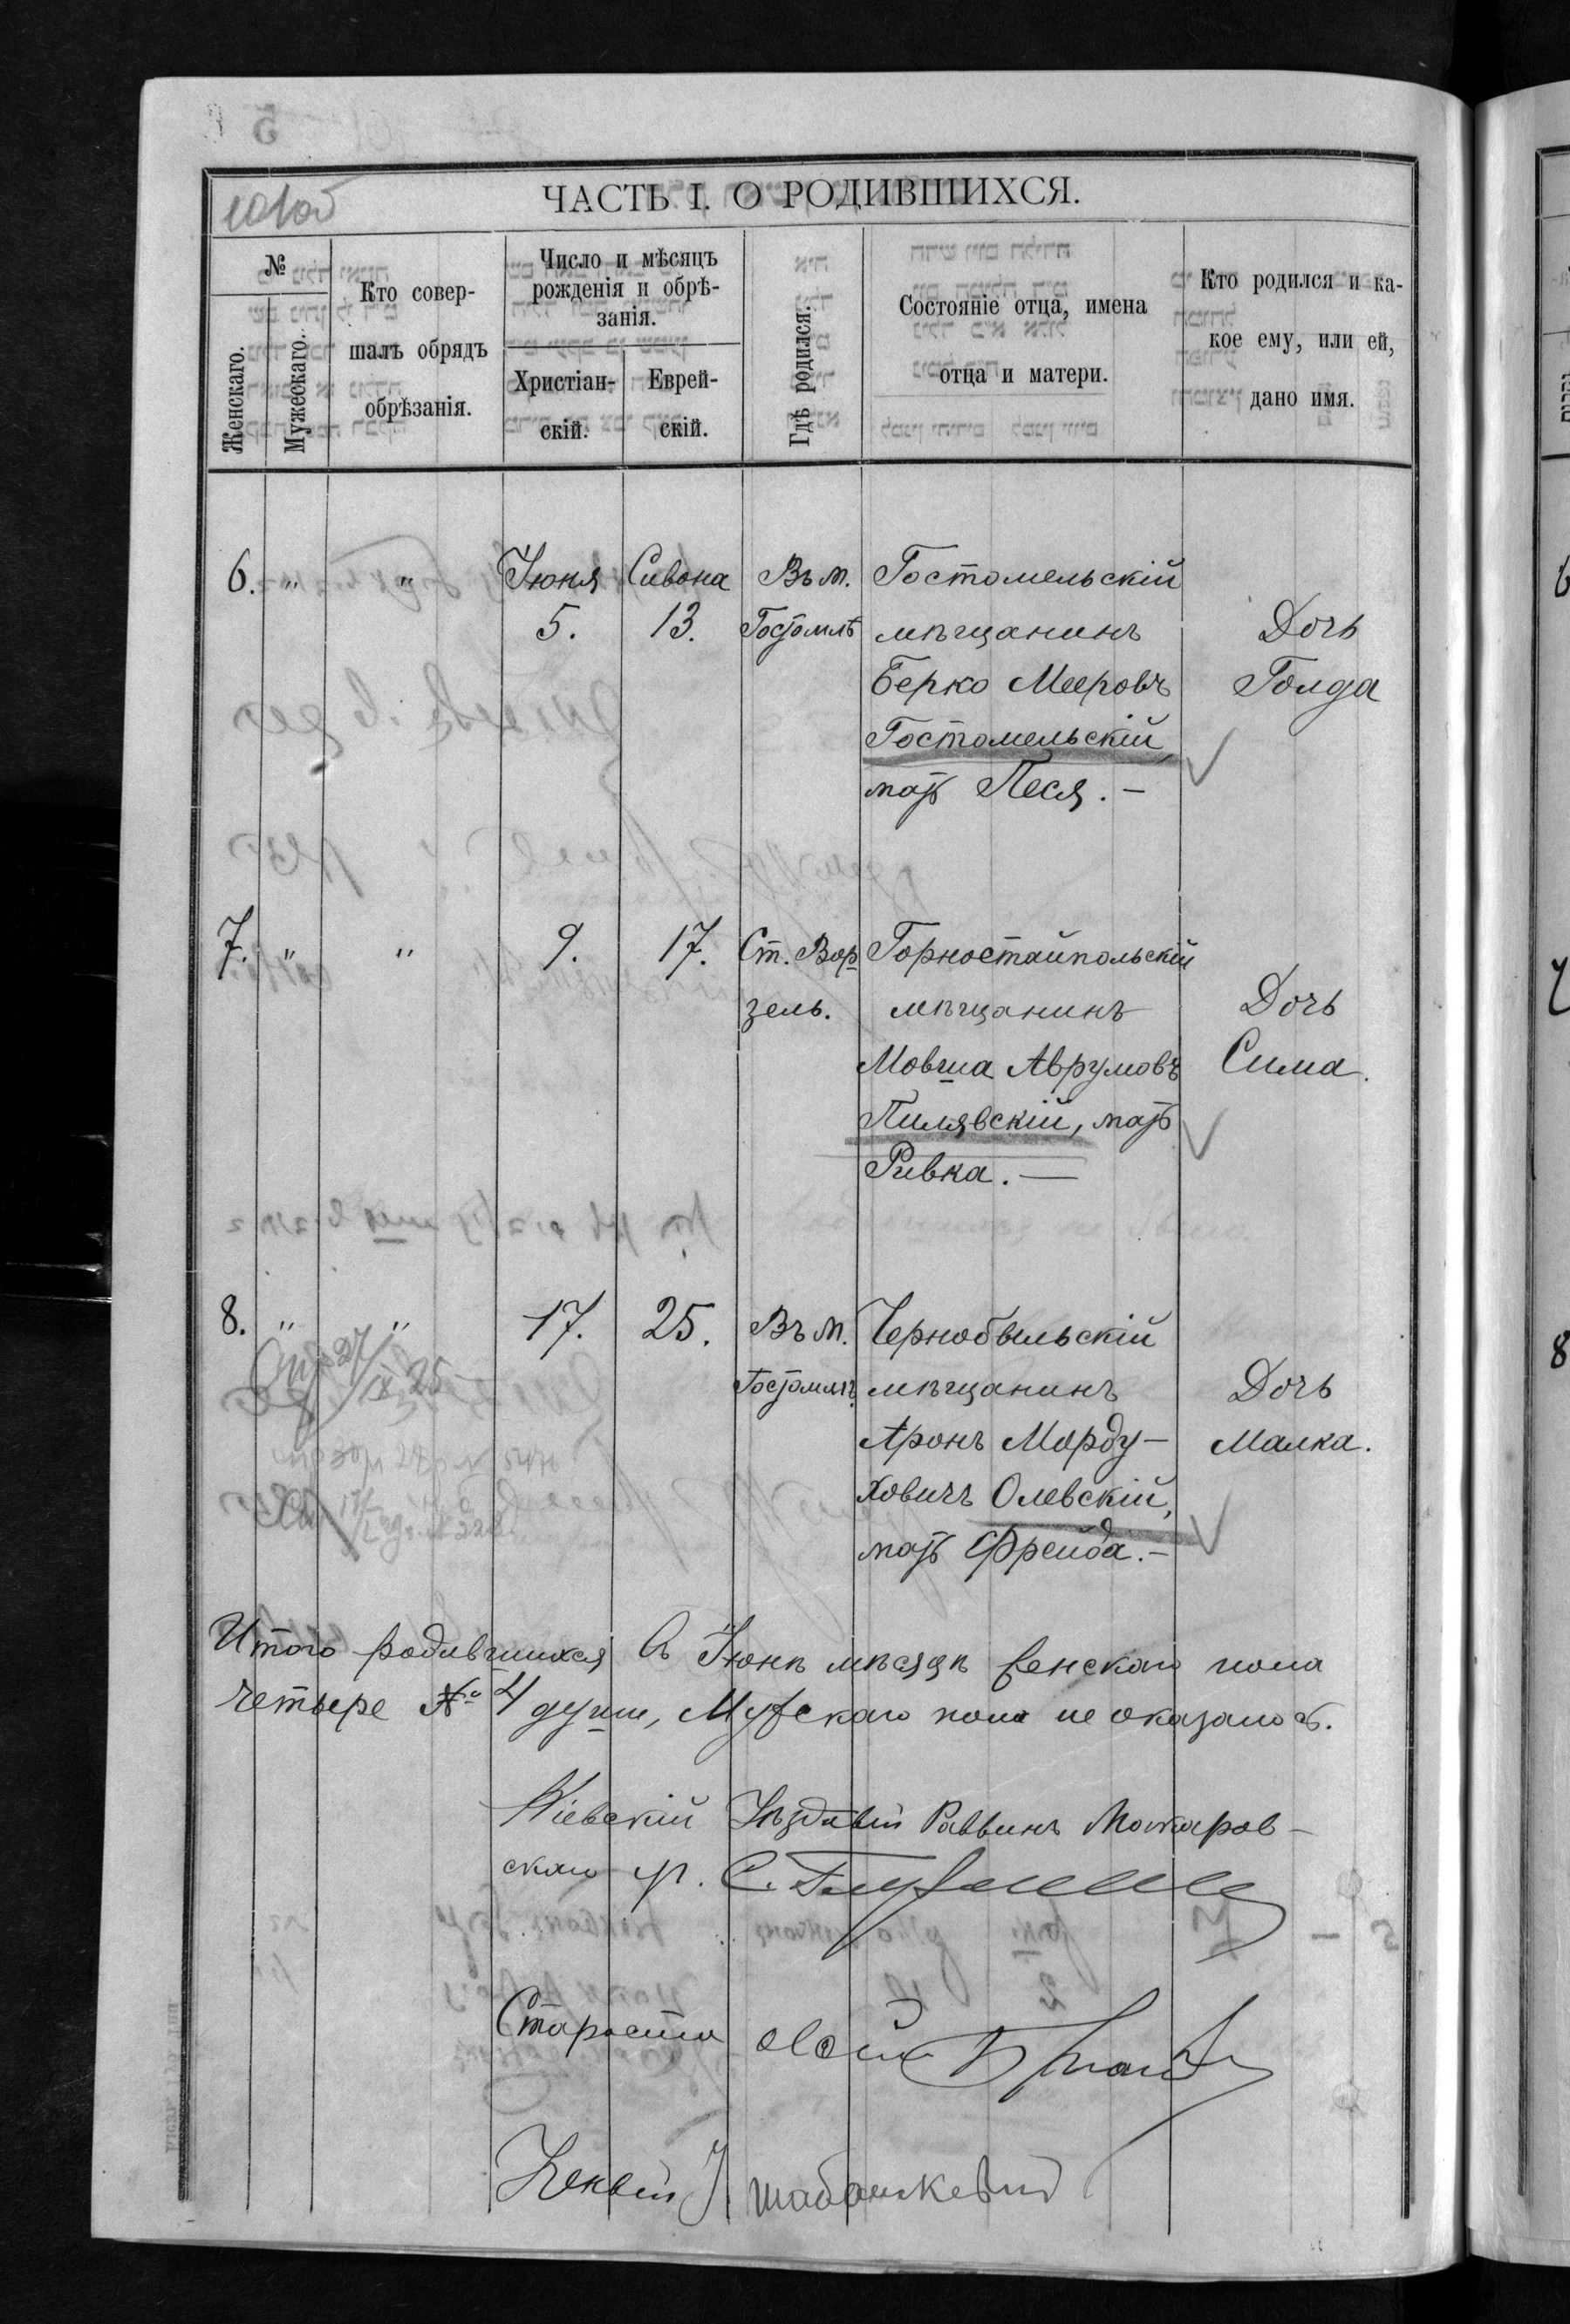 ЧАСТЬ I. О РОДИВШИХСЯ.
№
Женскаго.
Мужескаго.
Кто совер-
шалъ обрядъ
обрѣзанія.
Число и мѣсяцъ
рожденія и обрѣ-
занія.
Христіан-
скій.
Еврей-
скій.
Гдѣ родился.
Состояніе отца, имена
отца и матери.
Кто родился и ка-
кое ему, или ей,
дано имя.
6. " " Іюня Сивона Въ м. Гостомельскій
5. 13. Гостомлѣ мѣщанинъ Дочь
Берко Мееровъ Голда
Гостомельскій,
мать Песя. —
7. " " 9. 17. Ст. Вор Горностайпольскій
зель. мѣщанинъ Дочь
Мовша Аврумовъ Сима.
Пилявскій, мать
Ривка. —
8. " " 17. 25. Въ м. Чернобыльскій
Гостомлѣ мѣщанинъ Дочь
Аронъ Морду- Малка.
ховичъ Олевскій,
мать Фрейда. —
Итого родившихся въ Іюнѣ мѣсяцѣ женскаго пола
четыре № 4 души, Мужскаго пола не оказалось.
Кіевскій Уѣздный Раввинъ Макаров-
скаго уч. С.
Староста